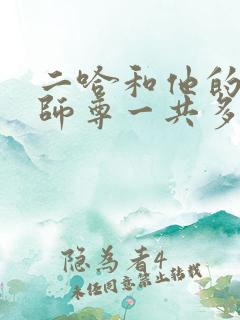 二哈和他的
師尊一共多
隐为者4
未任同意禁止转载